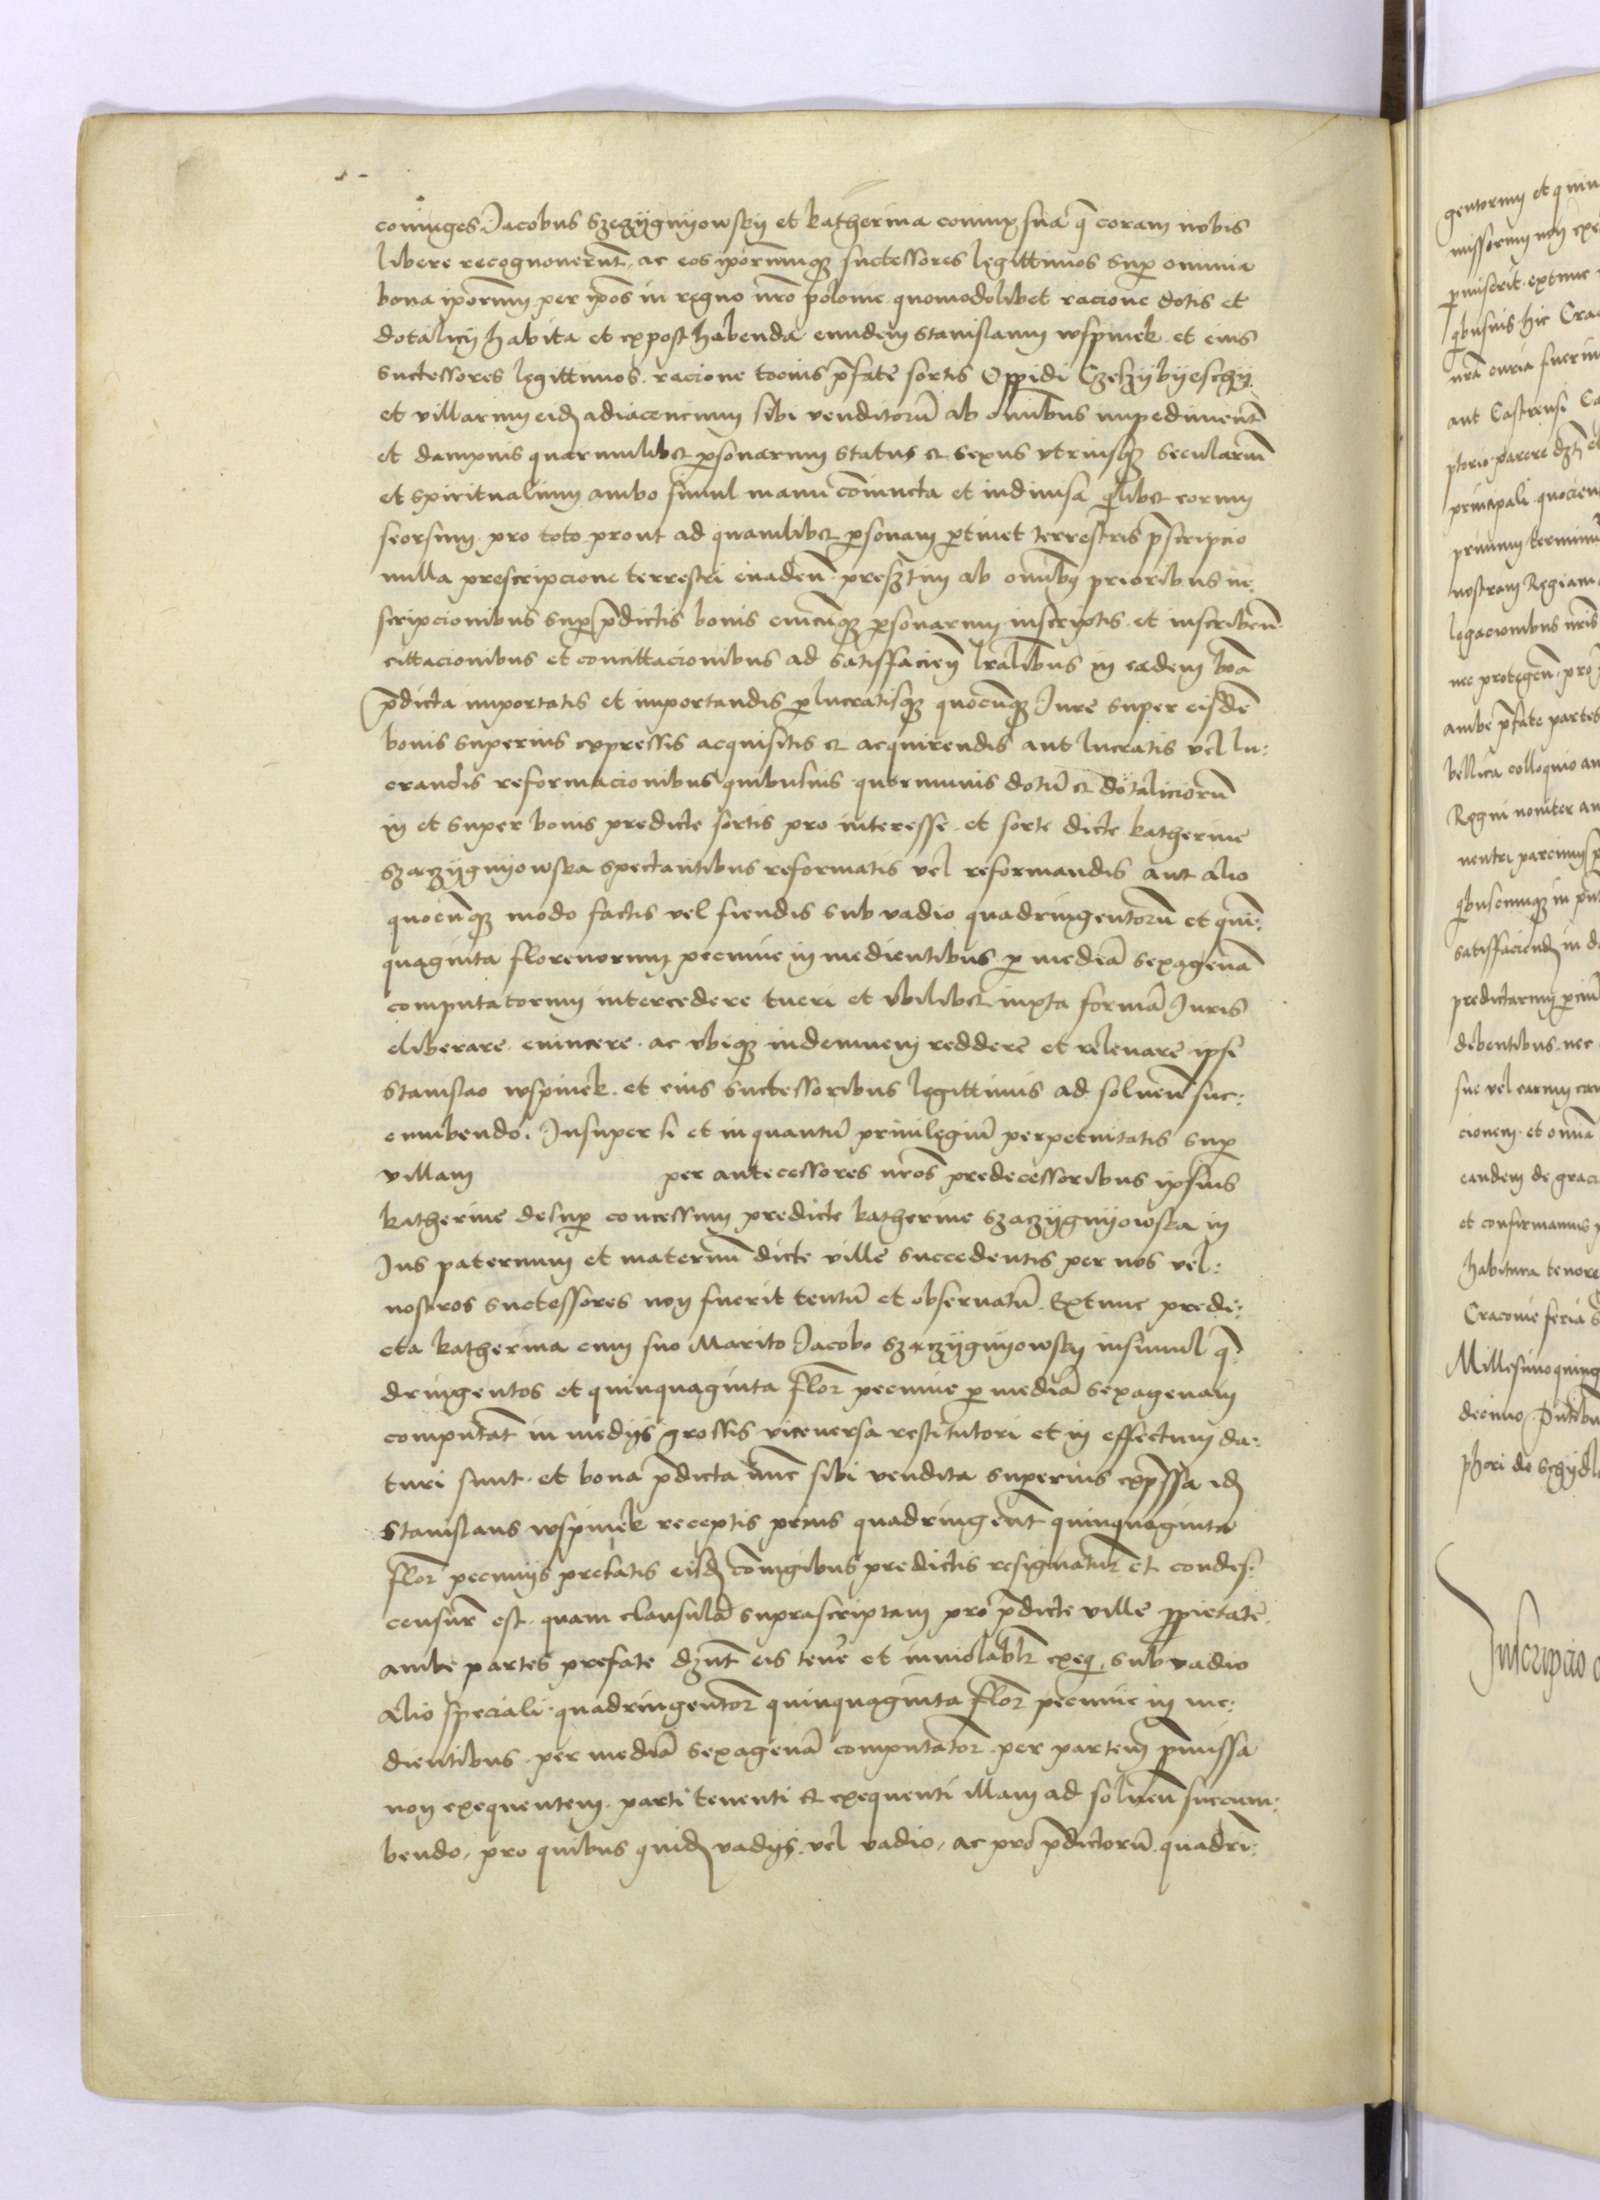 coniuges Jacobus Szczygnyowsky et katherina coniux sua q̄ coram nobis
libere recognouerūt. ac eos ip̄orumq₃ successores legittimos sup̄ omnia
bona ip̄orum per ip̄os in regno nr̄o polonie quomodolibet racione dotis et
dotalicij habita et expost habenda eundem Stanislaum wspinek et eius
successores legittimos. racione tocius p̄fate sortis Oppidi
et villarum eid̄ adiacencium sibi venditorū ab om̄ibus impediment̄
et dampnis quarumlibet p̄sonarum status et sexus vtriusq₃ seculariū
et spiritualium ambo simul manu coniuncta et indiuisa q̄libet eorum
seorsum pro toto prout ad quamlibet p̄sonam p̄tinet terrestris p̄scripcio
nulla prescripcione terrestri euadeñ presertim ab om̄ib₉ prioribus in⸗
scripcionibus sup̄ p̄dictis bonis cuicūq₃ p̄sonarum inscriptis et inscribeñ
cittacionibus et concittacionibus ad satisfacieñ lr̄alibus in eadem bōa
p̄dicta importatis et importandis p̄lucratisq₃ quocūq₃ Jure super eisdē
bonis superius expressis acquisitis et acquirendis aut lucratis vel lu:
crandis reformacionibus quibusuis quorumuis dotū et dotaliciorū
in et super bonis predicte sortis pro interesse et sorte dicte katherine
szczygnyowska spectantibus reformatis vel reformandis aut alio
quocūq₃ modo factis vel fiendis sub vadio quadringentorū et quin:
quaginta florenorum pecunie in medientibus p̄ mediā sexagenā
computatorum intercedere tueri et vbilibet iuxta formā Juris
eliberare euincere ac vbiq₃ indemnem reddere et releuare ipsi
Stanislao wspinek et eius successoribus legittimis ad soluēn suc:
cumbendo. Insuper si et inquantū priuilegiū perpetuitatis sup̄
villam per antecessores nr̄os predecessoribus ipsius
katherine desup̄ concessum predicte katherine szczygnyowska in
Jus paternum et maternū dicte ville succedentis per nos vel:
nostros successores non fuerit tentū et obseruatū. Extunc predi:
cta katherina cum suo Marito Jacobo szczygnyowsky insimul q̄⸗
dringentos et quinquaginta flor̄ pecunie p̄ mediā sexagenam
computat̄ in medijs grossis viceuersa restitutori et in effectum da:
turi sunt et bona p̄dicta nūc sibi vendita superius exp̄ssa id̄
Stanislaus wspinek receptis prius quadringent̄ quinquaginta
flor̄ pecunijs prefatis eisd̄ coniugibus predictis resignatur̄ et condes:
censur̄ est. quam clausulā suprascriptam pro p̄dicte ville p̄prietate
ambe partes prefate dz̄nt eis tenē et inuiolabl̄r exeq̄. sub vadio
alio speciali quadringentor̄ quinquaginta flor̄ pecunie in me:
dientibus per mediā sexagenā computator̄ per partem p̄missa
non exequentem parti tenenti et exequenti illam ad soluēn succum:
bendo, pro quibus quid̄ vadijs vel vadio, ac pro p̄dictorū quadrī:
gentorum et quin
missorum non
p̄miserit extunc
q̄busuis hic Cra
nr̄a curia fuerin
aut Castrensi Ca
parere
principali quocien
primum terminū
nostram Regiam
legacionibus nr̄is
nec protegeñ pro
ambe p̄fate partes
bellica colloquio
Regni noniter
q̄buscumq₃ in
satisfaciend̄ in
predictarum
debentibus nec
sue vel earum
cionem et omnia
eandem de graci
et confirmamus
habitura tenore
Cracouie feria
Millesimoquing
decimo
de
Inscripcio